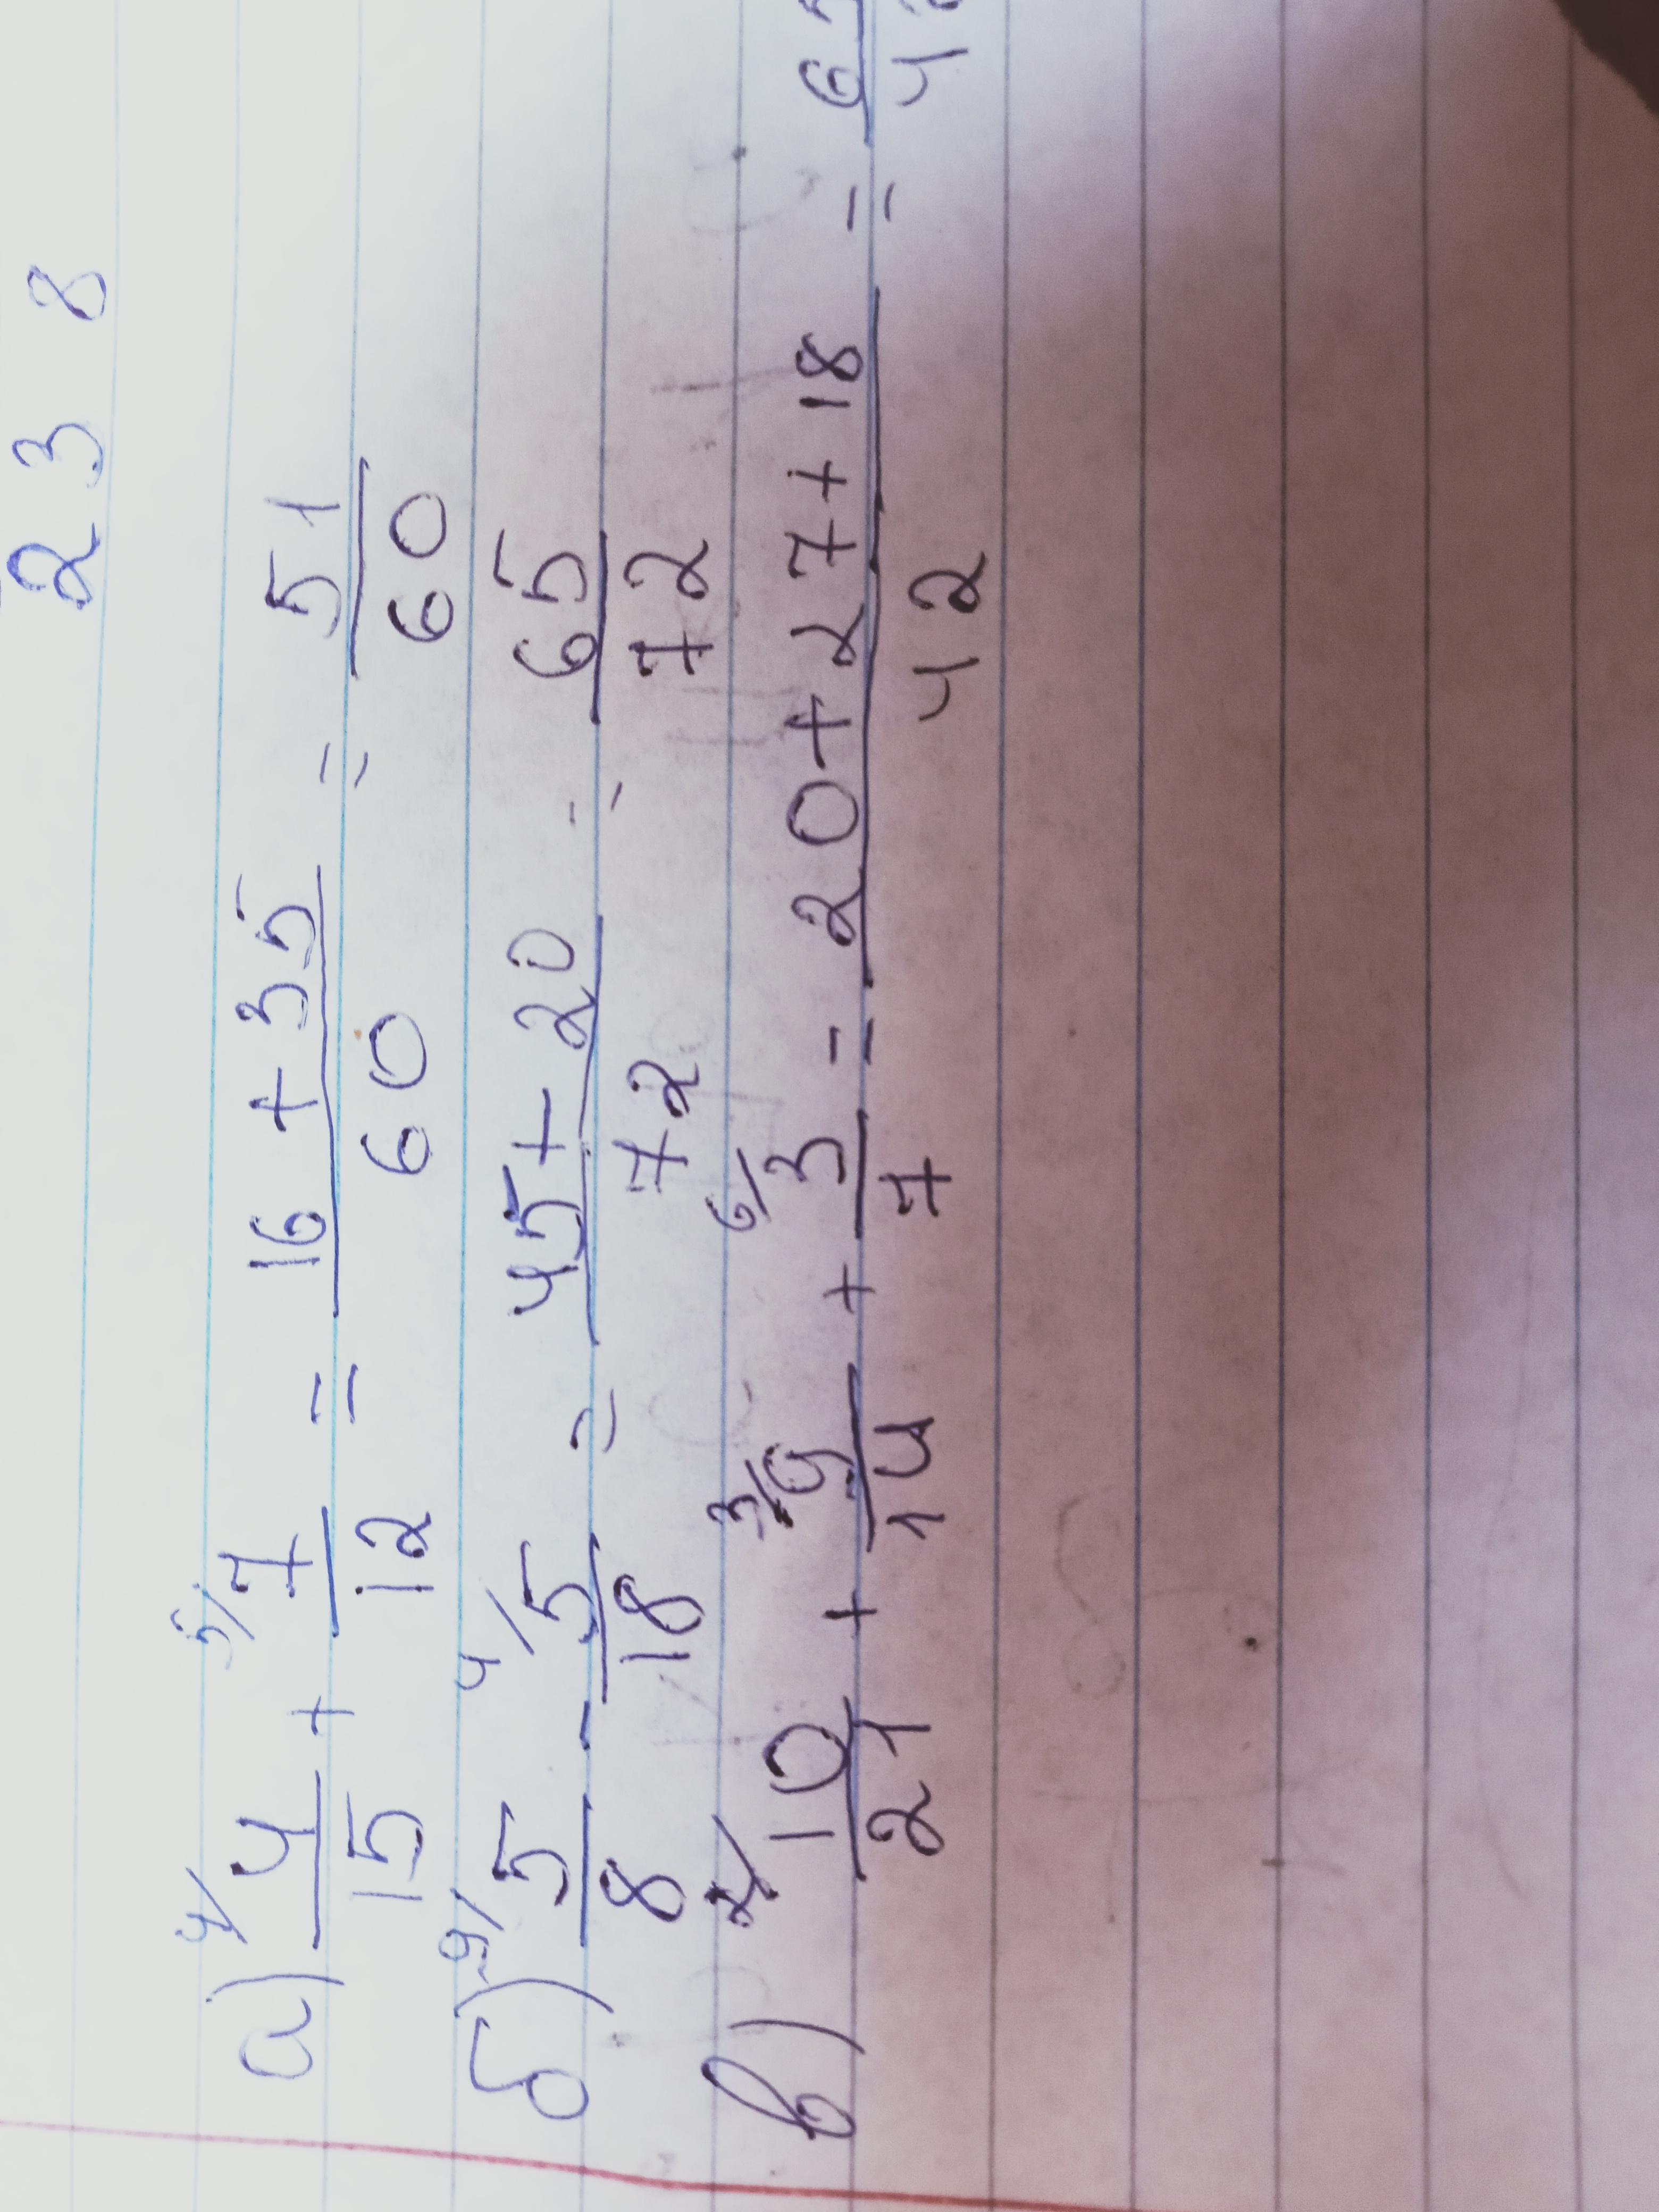 238
а) 4/ 4/15 + 5/ 7/12 = (16 + 35)/60 = 51/60
б) 9/ 5/8 - 4/ 5/18 = (45 + 20)/72 = 65/72
в) 2/ 10/21 + 3/ 9/14 + 6/ 3/7 = (20 + 27 + 18)/42 =